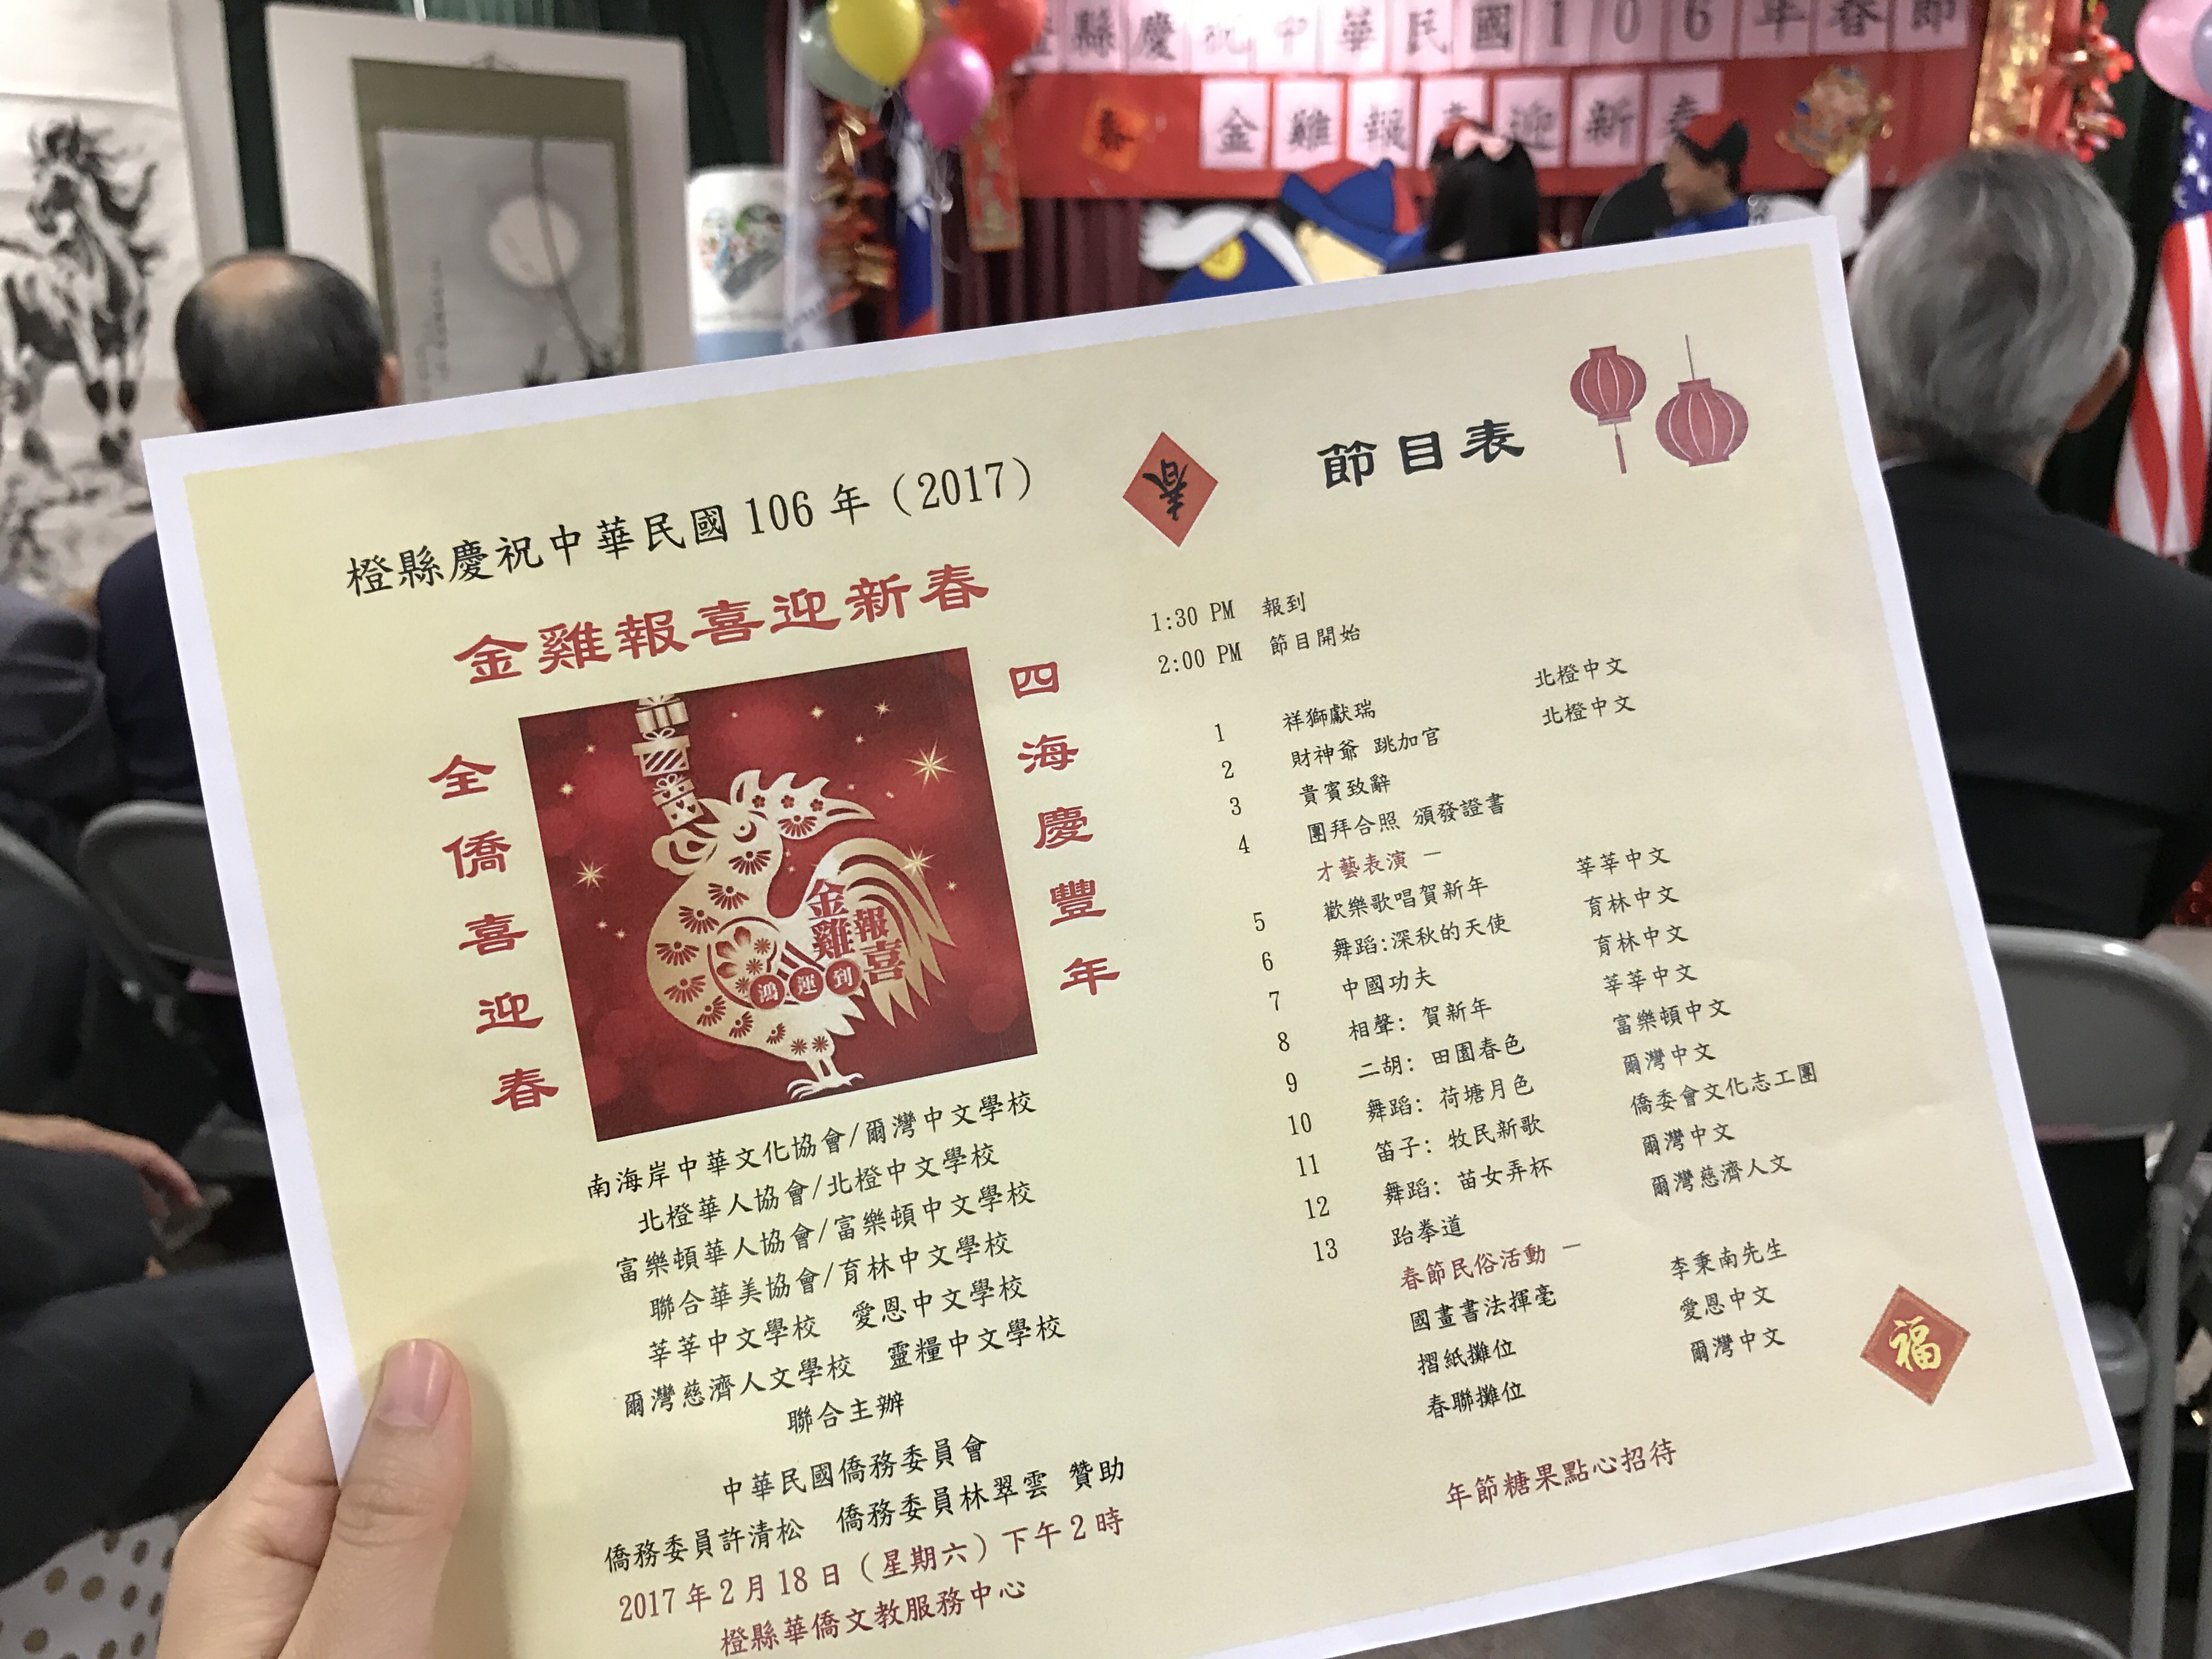 橙縣慶祝中華民國106年春節
金雞報喜迎新春
春
橙縣慶祝中華民國 106 年（2017）
金雞報喜迎新春
全僑喜迎春
四海慶豐年
金雞報喜
鴻運到
南海岸中華文化協會/爾灣中文學校
北橙華人協會/北橙中文學校
富樂頓華人協會/富樂頓中文學校
聯合華美協會/育林中文學校
莘莘中文學校 愛恩中文學校
爾灣慈濟人文學校 靈糧中文學校
聯合主辦
中華民國僑務委員會
僑務委員許清松 僑務委員林翠雲 贊助
2017 年 2 月 18 日（星期六）下午 2 時
橙縣華僑文教服務中心
春
節目表
1:30 PM 報到
2:00 PM 節目開始
1 祥獅獻瑞 北橙中文
2 財神爺 跳加官 北橙中文
3 貴賓致辭
4 團拜合照 頒發證書
才藝表演 —
5 歡樂歌唱賀新年 莘莘中文
6 舞蹈:深秋的天使 育林中文
7 中國功夫 育林中文
8 相聲: 賀新年 莘莘中文
9 二胡: 田園春色 富樂頓中文
10 舞蹈: 荷塘月色 爾灣中文
11 笛子: 牧民新歌 僑委會文化志工團
12 舞蹈: 苗女弄杯 爾灣中文
13 跆拳道 爾灣慈濟人文
春節民俗活動 —
國畫書法揮毫 李秉南先生
摺紙攤位 愛恩中文
春聯攤位 爾灣中文
福
年節糖果點心招待